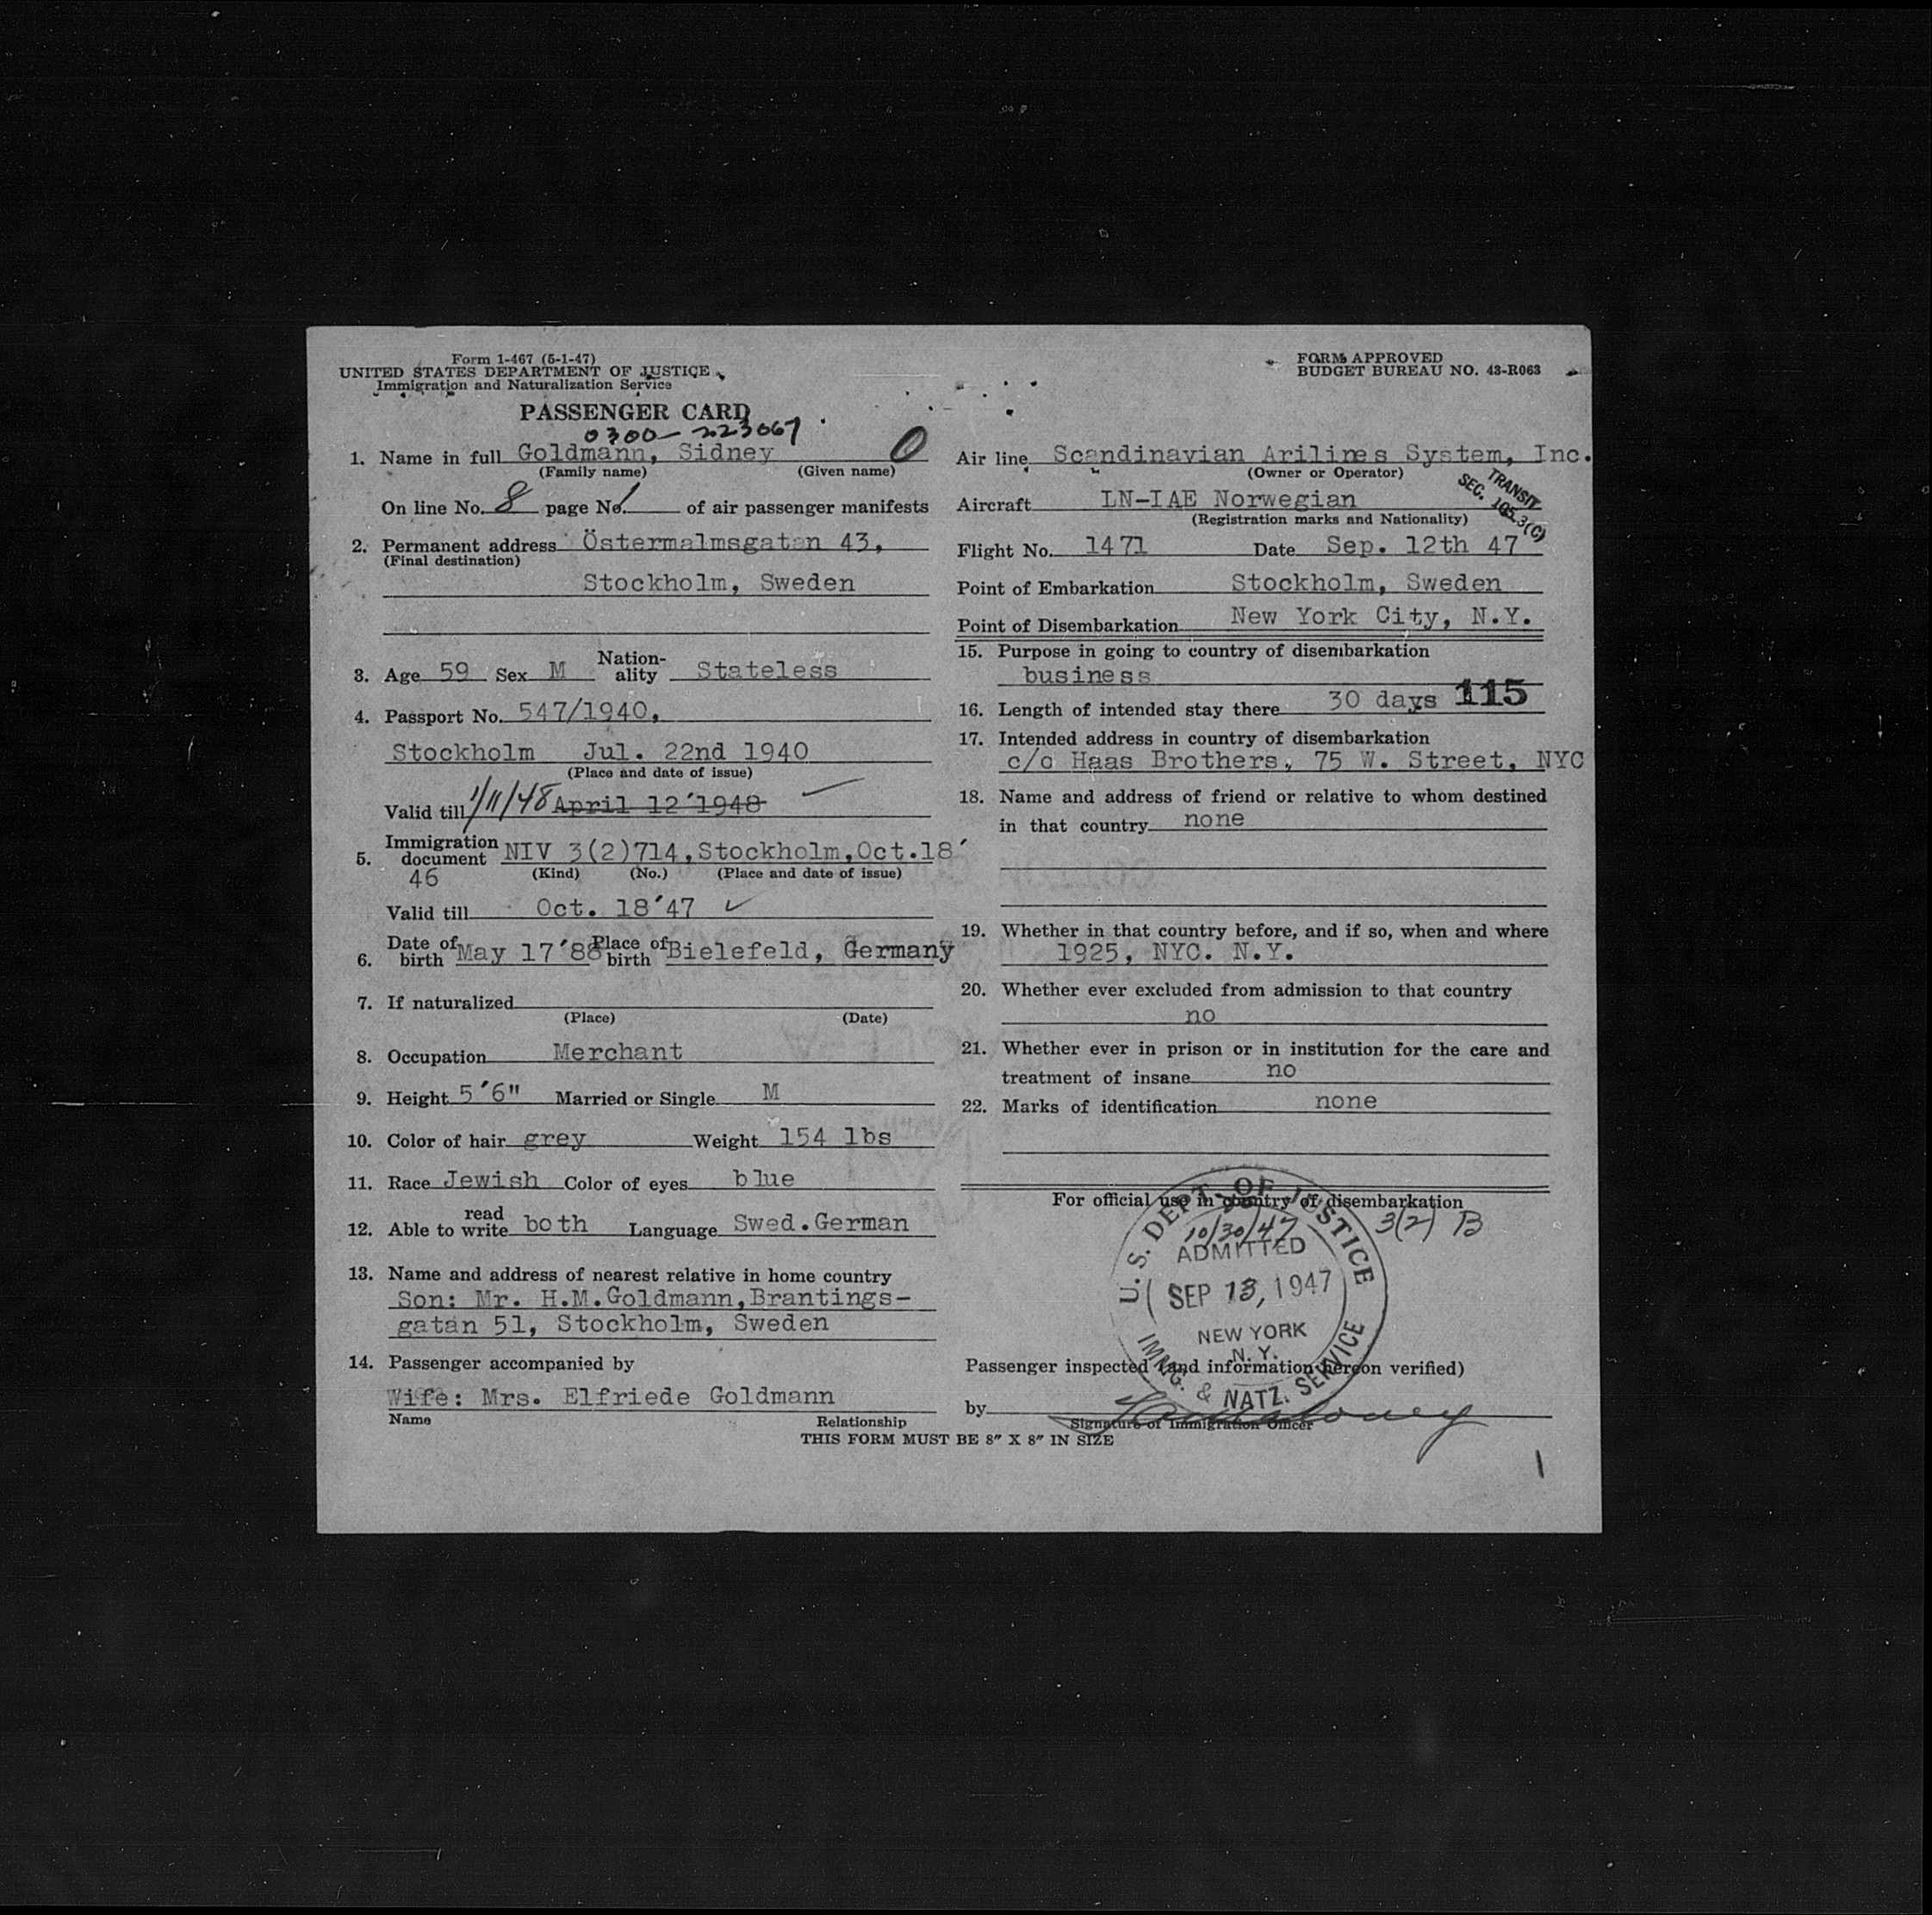 Form 1-467 (5-1-47)
UNITED STATES DEPARTMENT OF JUSTICE
Immigration and Naturalization Service
PASSENGER CARD
0300-223067
1. Name in full Goldmann, Sidney 0
(Family name) (Given name)
On line No. 8 page No. 1 of air passenger manifests
2. Permanent address Östermalmsgatan 43,
(Final destination)
Stockholm, Sweden
3. Age 59 Sex M Nation-ality Stateless
4. Passport No. 547/1940,
Stockholm Jul. 22nd 1940
(Place and date of issue)
Valid till 1/11/48 April 12'1948
5. Immigration document NIV 3(2)714,Stockholm,Oct.18'
46 (Kind) (No.) (Place and date of issue)
Valid till Oct. 18'47
6. Date of birth May 17'88 Place of birth Bielefeld, Germany
7. If naturalized
(Place) (Date)
8. Occupation Merchant
9. Height 5'6" Married or Single M
10. Color of hair grey Weight 154 lbs
11. Race Jewish Color of eyes blue
12. Able to read write both Language Swed.German
13. Name and address of nearest relative in home country
Son: Mr. H.M.Goldmann,Brantings-
gatan 51, Stockholm, Sweden
14. Passenger accompanied by
Wife: Mrs. Elfriede Goldmann
Name Relationship
THIS FORM MUST BE 8" X 8" IN SIZE
FORM APPROVED
BUDGET BUREAU NO. 43-R063
Air line Scandinavian Arilines System, Inc.
(Owner or Operator)
TRANSIT
SEC. 105.3(C)
Aircraft LN-IAE Norwegian
(Registration marks and Nationality)
Flight No. 1471 Date Sep. 12th 47
Point of Embarkation Stockholm, Sweden
Point of Disembarkation New York City, N.Y.
15. Purpose in going to country of disembarkation
business
16. Length of intended stay there 30 days 115
17. Intended address in country of disembarkation
c/o Haas Brothers, 75 W. Street, NYC
18. Name and address of friend or relative to whom destined
in that country none
19. Whether in that country before, and if so, when and where
1925, NYC. N.Y.
20. Whether ever excluded from admission to that country
no
21. Whether ever in prison or in institution for the care and
treatment of insane no
22. Marks of identification none
For official use in country of disembarkation
3(2) B
U.S. DEPT. OF JUSTICE
10/30/47
ADMITTED
SEP 13, 1947
NEW YORK
N.Y.
IMMIG. & NATZ. SERVICE
Passenger inspected (and information hereon verified)
by
Signature of Immigration Officer
1